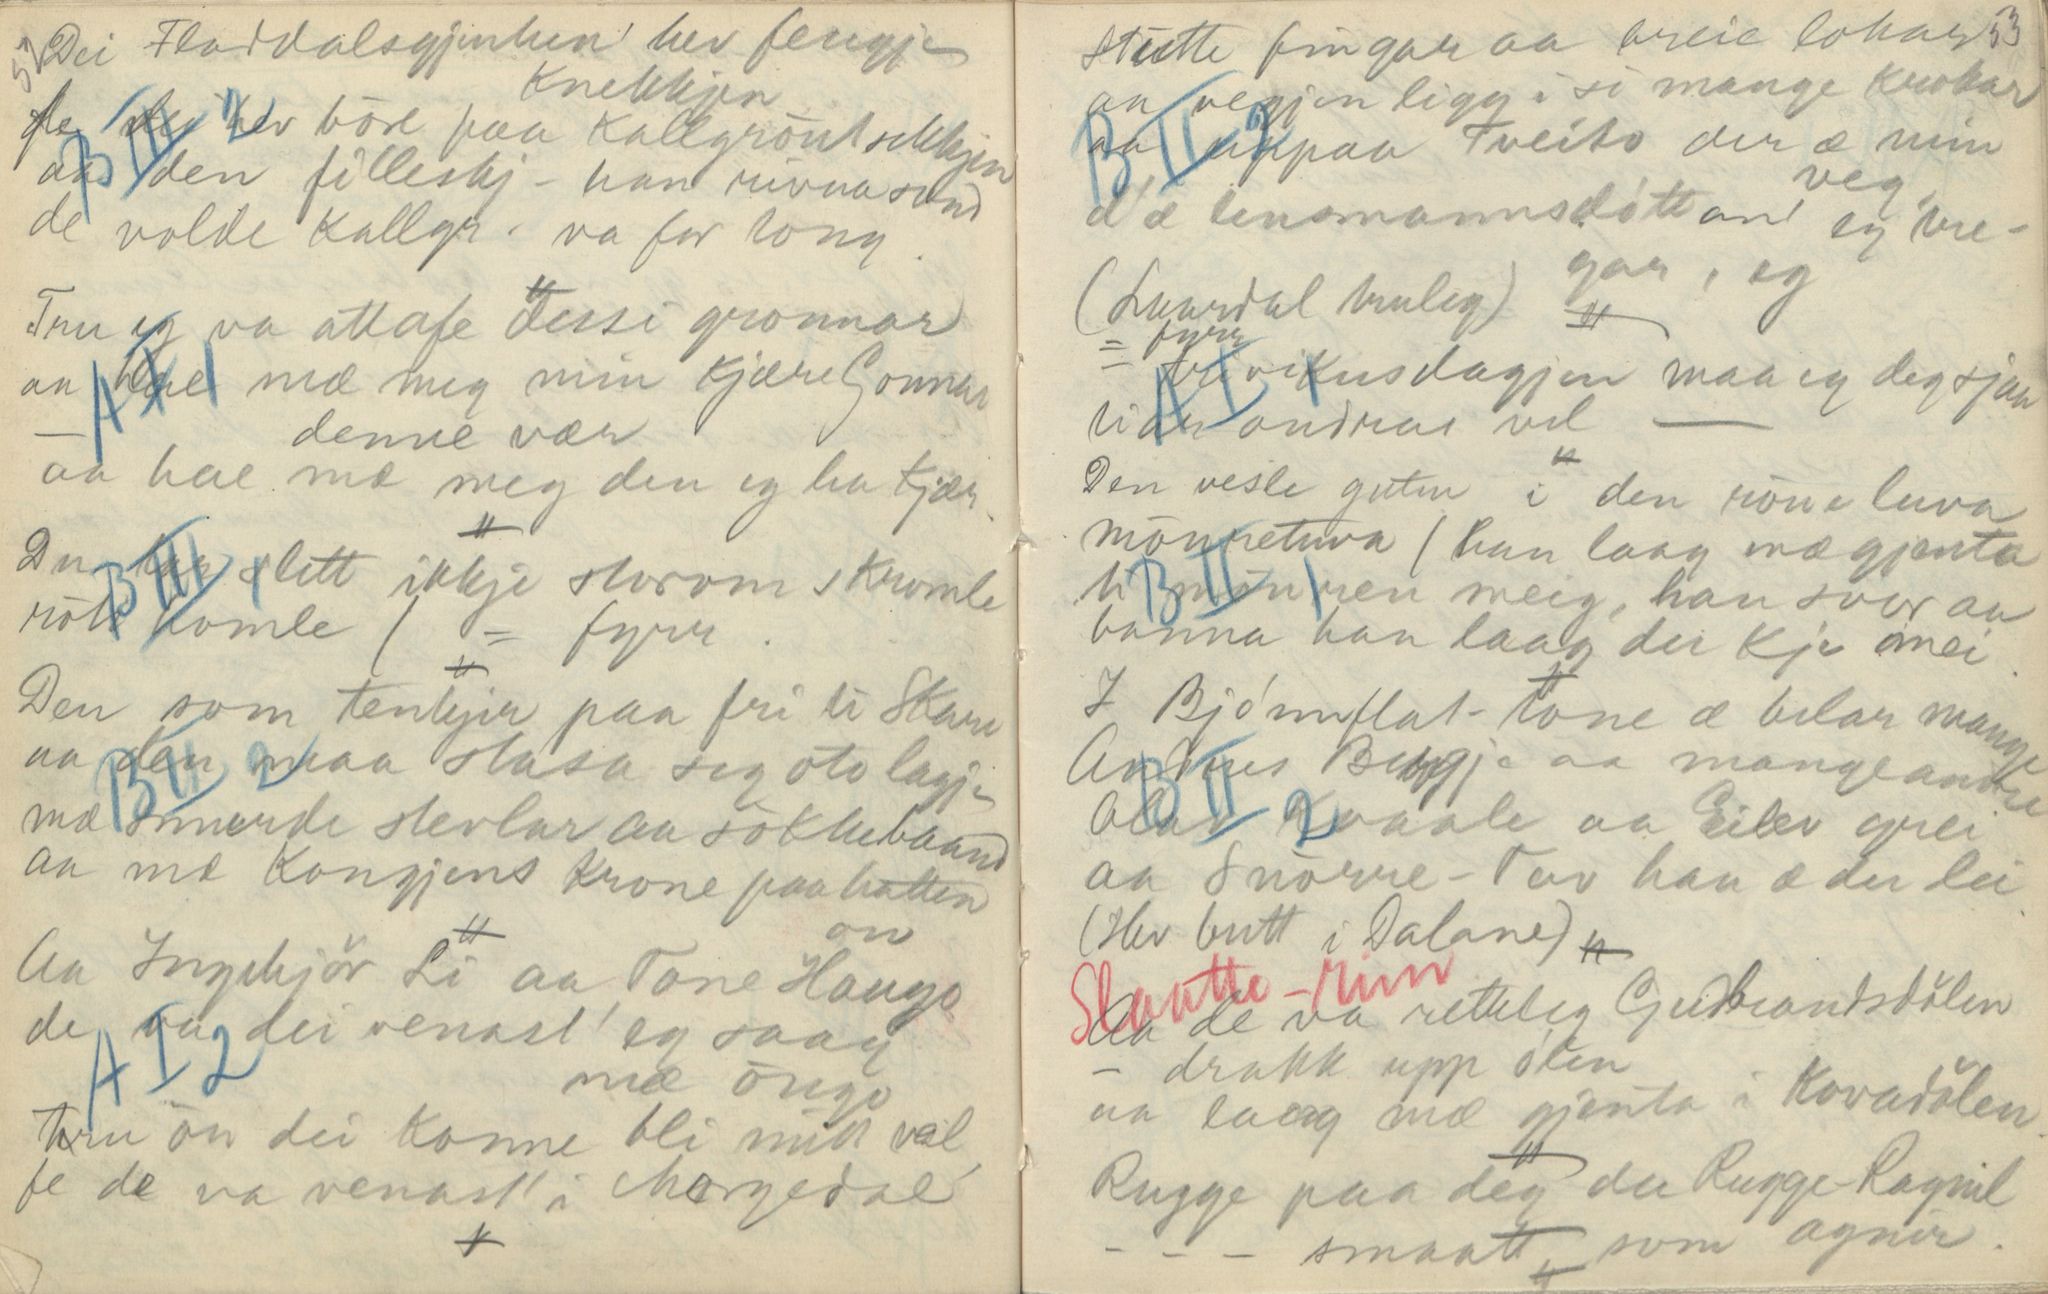 52
Dei Fladdalsgjentun' hev fengje
Knekkjen
fe dei hev böre paa Kallgröntsekkjen
B III 2
aa den filleskj - han rivna sund
de volde Kallgr. va for tong.
"
Tru eg va attafe dessi gronnar
aa hae mæ meg min kjære Gonnar
A I 1
— denne vær
aa hae mæ meg den eg ha kjær.
"
Du slett ikkje storom skromle
B III 1
röte homle ( = fyrr.
"
Den som tenkjir paa fri ti Skare
aa den maa stasa seg oto lagje
B II 2
mæ smurde stevlar aa sökkebaand
aa mæ Kongjens Krone paa hatten
"
on
Aa Ingebjör Li aa Tone Haugo
de va dei venast' eg saag
A I 2
mæ öugo
tru ön dei konne bli mitt val
fe de va venast' i Morgedal
53
Stutte fingar aa breie lokar
aa vegjen ligg i si mange krokar
B II 2
aa uppaa Tveito der æ min
veg,
d'æ lensmannsdótt an' eg bre-
gar, eg
(Laardal truleg)
"
= fyrr
— Tri vikusdagjen maa eg deg sjaa
A I 1
ti dei andrae vel —
"
Den vesle guten i den röue luva
mönnetuva / han laag mæ gjenta
B II 1
ti mönnen meig, han svor aa
banna han laag der kje mei.
"
I Bjónnflat-tone æ belar mange
Andres Byggje aa mange andre
B II 2
Olav Kvaale aa Eilev grei
aa Snörre-Tov han æ der lei
(Hev butt i Dalane)
"
Slaatte-rim
Aa de va retteleg Gudbrandsdölen
- drakk upp ölen
aa laag mæ gjenta i Kovadölen.
"
Rugge paa deg du Rugge-Ragnil
- - - smaatt som agnir.
"